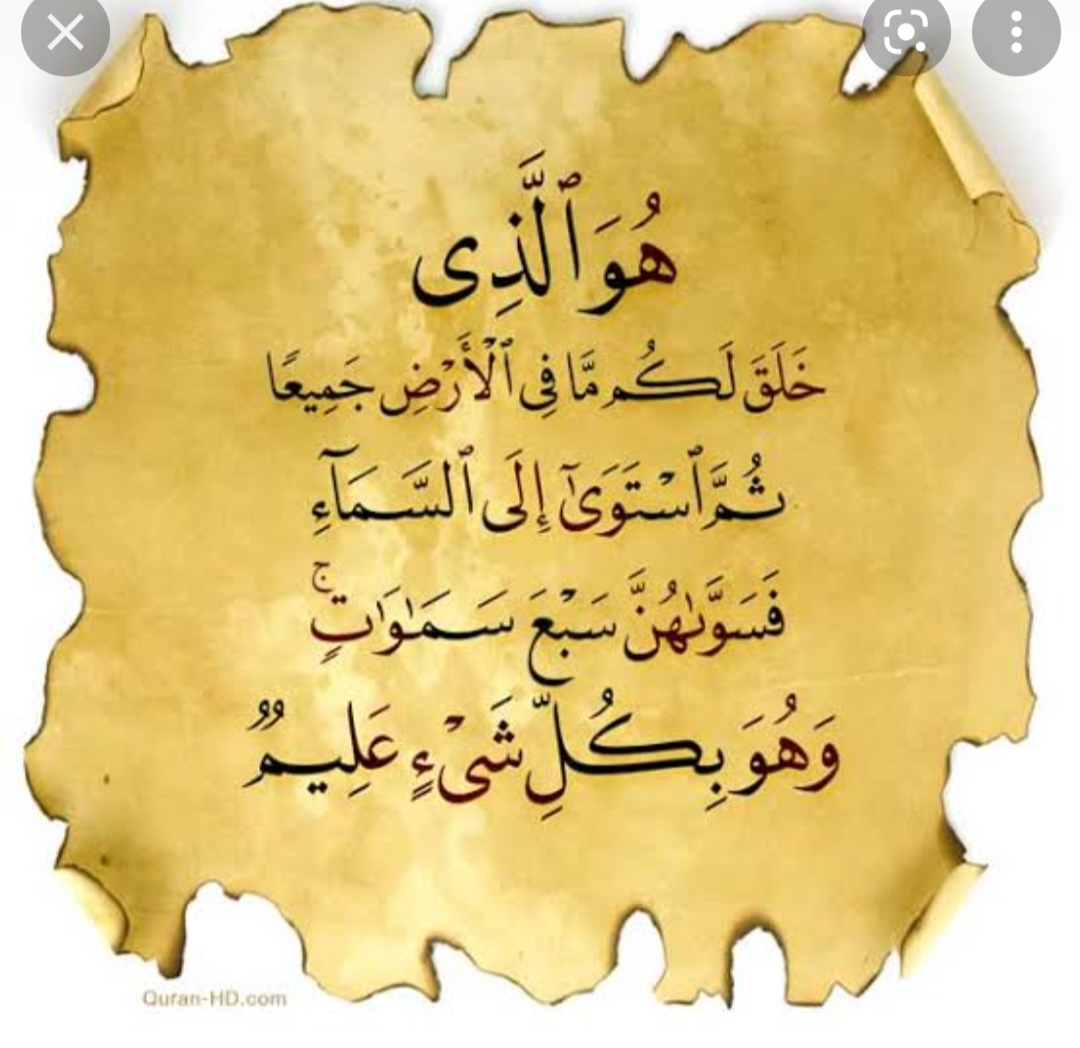 هُوَ ٱلَّذِى
خَلَقَ لَكُم مَّا فِى ٱلْأَرْضِ جَمِيعًا
ثُمَّ ٱسْتَوَىٰٓ إِلَى ٱلسَّمَآءِ
فَسَوَّىٰهُنَّ سَبْعَ سَمَٰوَٰتٍ ۚ
وَهُوَ بِكُلِّ شَىْءٍ عَلِيمٌ
Quran-HD.com